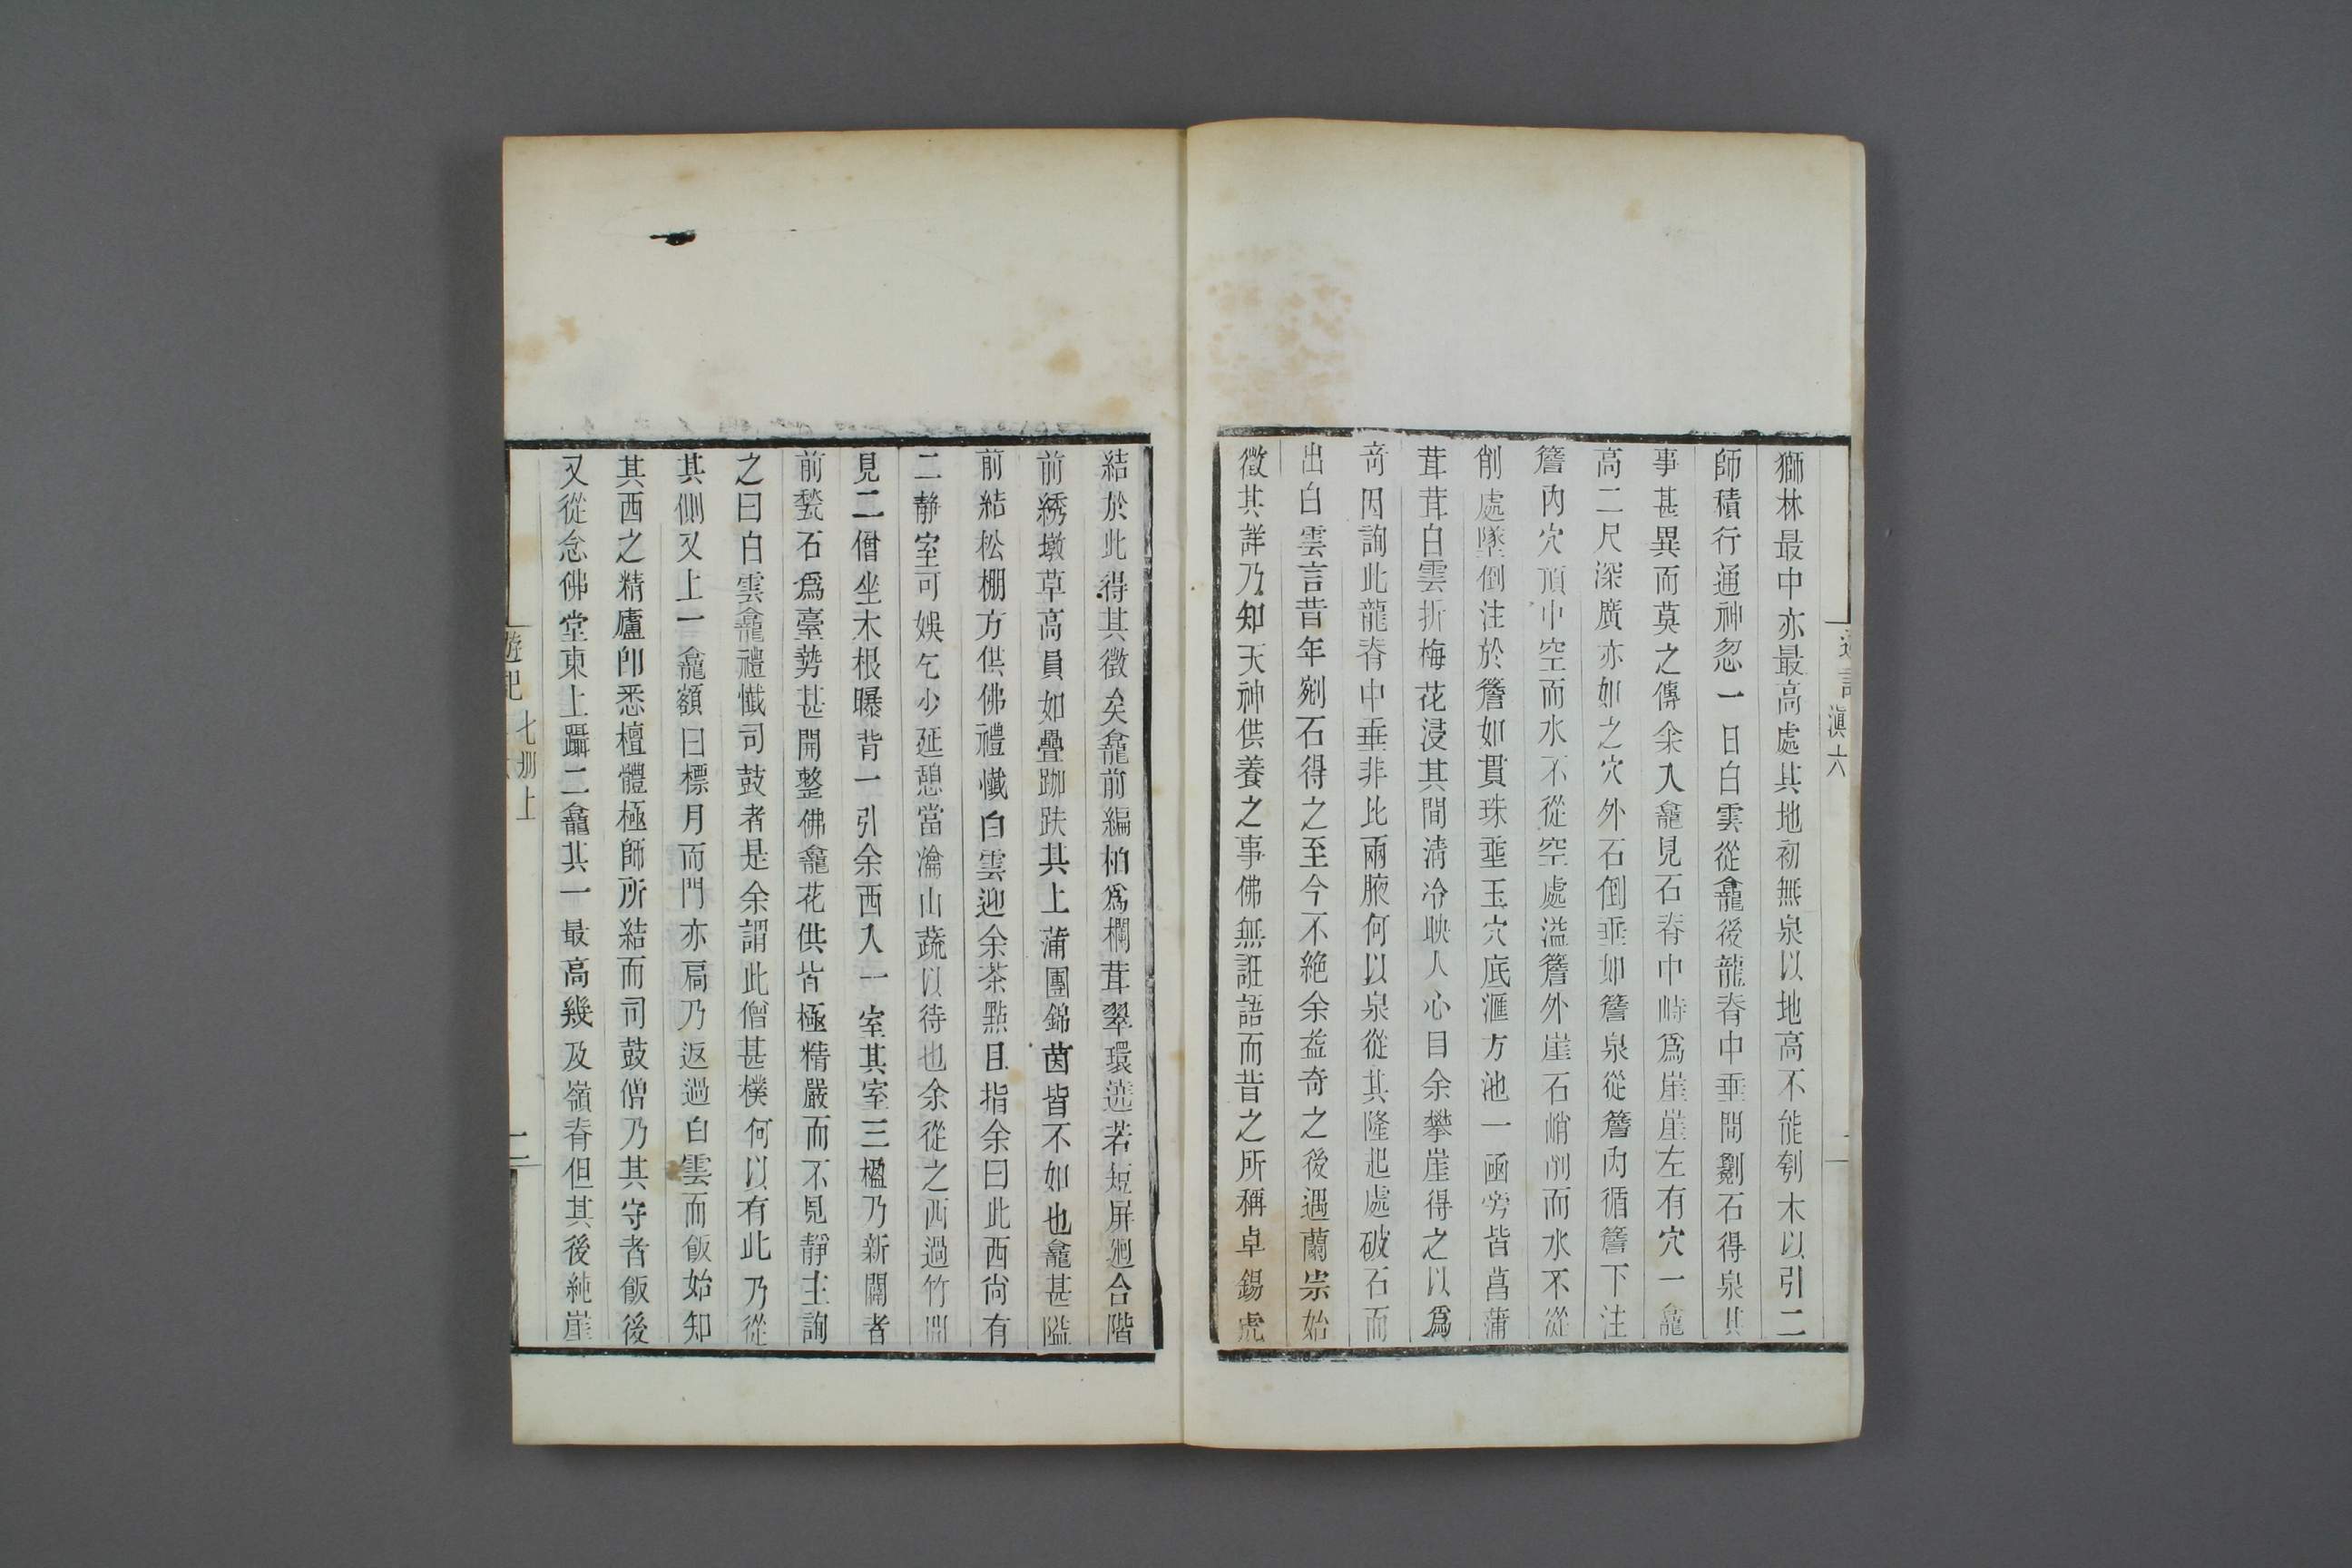 遊記
滇六
獅林最中亦最高處其地初無泉以地高不能刳木以引二
師積行通神忽一日白雲從龕後龍脊中垂間劚石得泉其
事甚異而莫之傳余入龕見石脊中峙爲崖崖左有穴一龕
高二尺深廣亦如之穴外石倒垂如簷泉從簷內循簷下注
簷內穴頂中空而水不從空處溢簷外崖石峭削而水不從
削處墜倒注於簷如貫珠垂玉穴底滙方池一函旁皆菖蒲
茸茸白雲折梅花浸其間清冷映人心目余攀崖得之以爲
奇因詢此龍脊中垂非比兩腋何以泉從其隆起處破石而
出白雲言昔年剜石得之至今不絶余益奇之後遇蘭宗始
徵其詳乃知天神供養之事佛無誑語而昔之所稱卓錫虎
結於此得其徵矣龕前編柏爲欄茸翠環遶若短屏廻合階
前綉墩草高員如疊跏趺其上蒲團錦茵皆不如也龕甚隘
前結松棚方供佛禮懺白雲迎余茶點且指余曰此西尙有
二靜室可娛乞少延憩當瀹山蔬以待也余從之西過竹間
見二僧坐木根曝背一引余西入一室其室三楹乃新闢者
前甃石爲臺勢甚開整佛龕花供皆極精嚴而不見靜主詢
之曰白雲龕禮懺司鼓者是余謂此僧甚樸何以有此乃從
其側又上一龕額曰標月而門亦扃乃返過白雲而飯始知
其西之精廬卽悉檀體極師所結而司鼓僧乃其守者飯後
又從念佛堂東上躡二龕其一最高幾及嶺脊但其後純崖
遊記
七册上
二